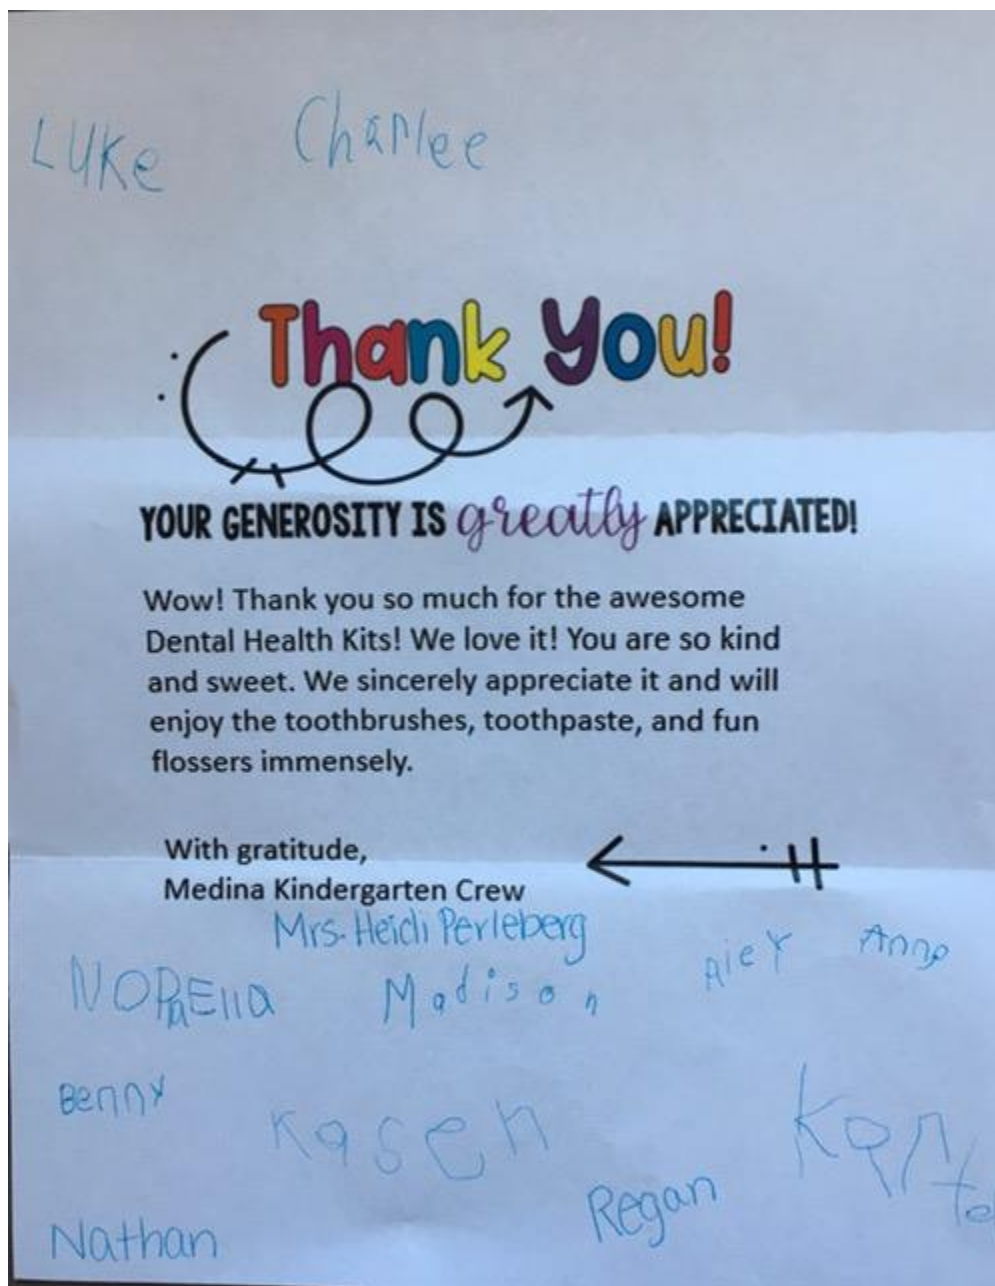 Luke Charlee
Thank You!
YOUR GENEROSITY IS greatly APPRECIATED!
Wow! Thank you so much for the awesome
Dental Health Kits! We love it! You are so kind
and sweet. We sincerely appreciate it and will
enjoy the toothbrushes, toothpaste, and fun
flossers immensely.
With gratitude,
Medina Kindergarten Crew
Mrs. Heidi Perleberg
Anna
Madison
Benny
Kasen
Regan
Nathan